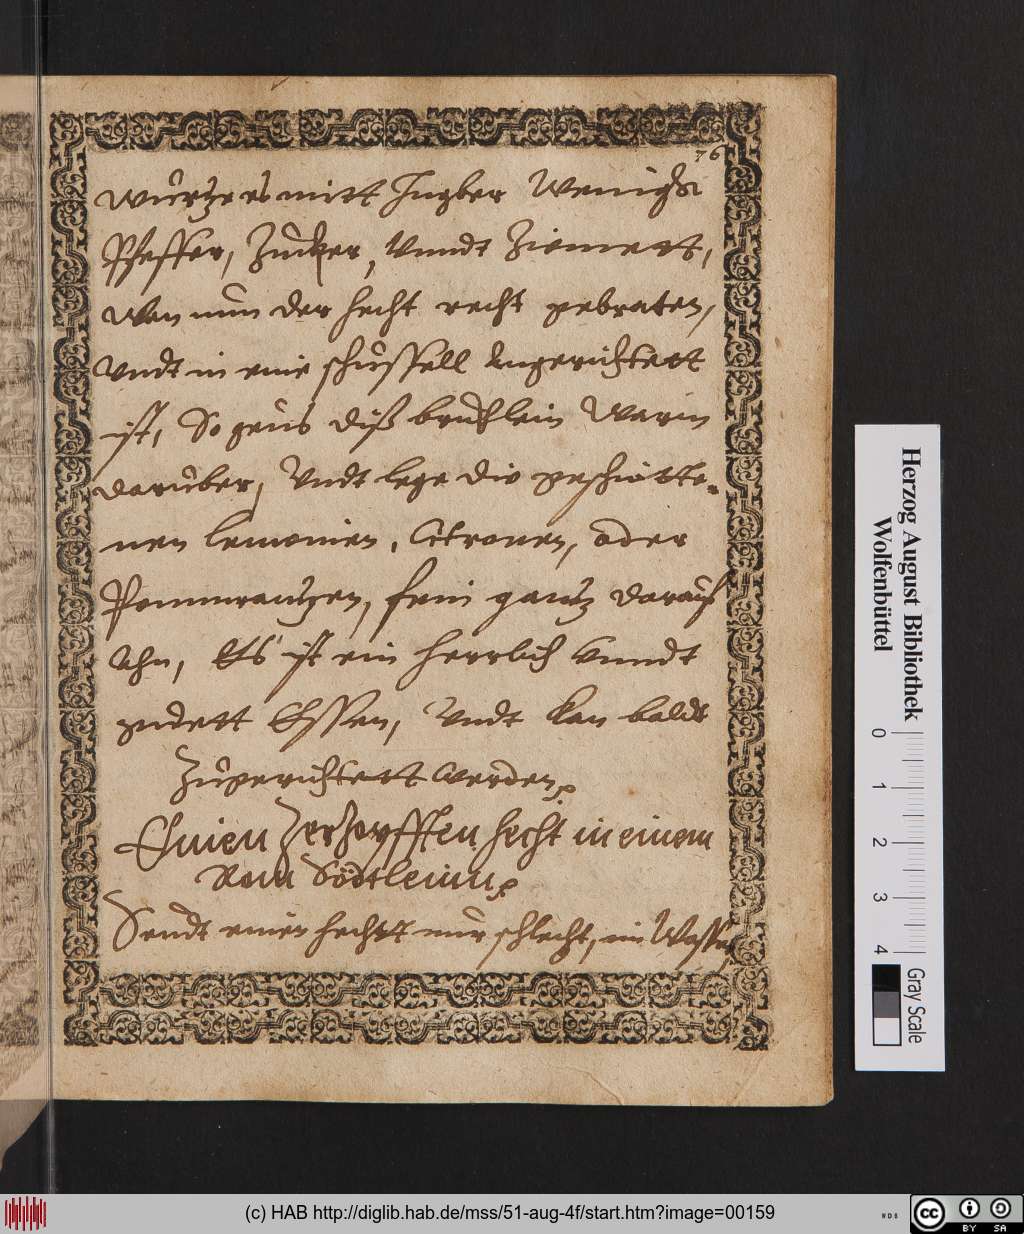 76
würtze es mitt Ingber wenigh
Pfeffer, Zucker, vnndt Zimmett,
wen nun der hecht recht gebraten,
vndt in eine schüssell angerichtett
ist, So geus diß brühlein warm
darüber, Vndt lege die geschnitte-
nen lemonien, Citronen, oder
Pommrantzen, fein gantz darauf
Ahn, Es ist ein herrlich vnndt
gudett Essen, Vndt kan baldt
Zugerichtett werden.
Einen Hecht in einem
Södtleinn.
Seudt einen hechtt nur schlecht, im Wasser
Herzog August Bibliothek
Wolfenbüttel
0 1 2 3 4
Gray Scale
(c) HAB http://diglib.hab.de/mss/51-aug-4f/start.htm?image=00159
WDB
cc BY SA